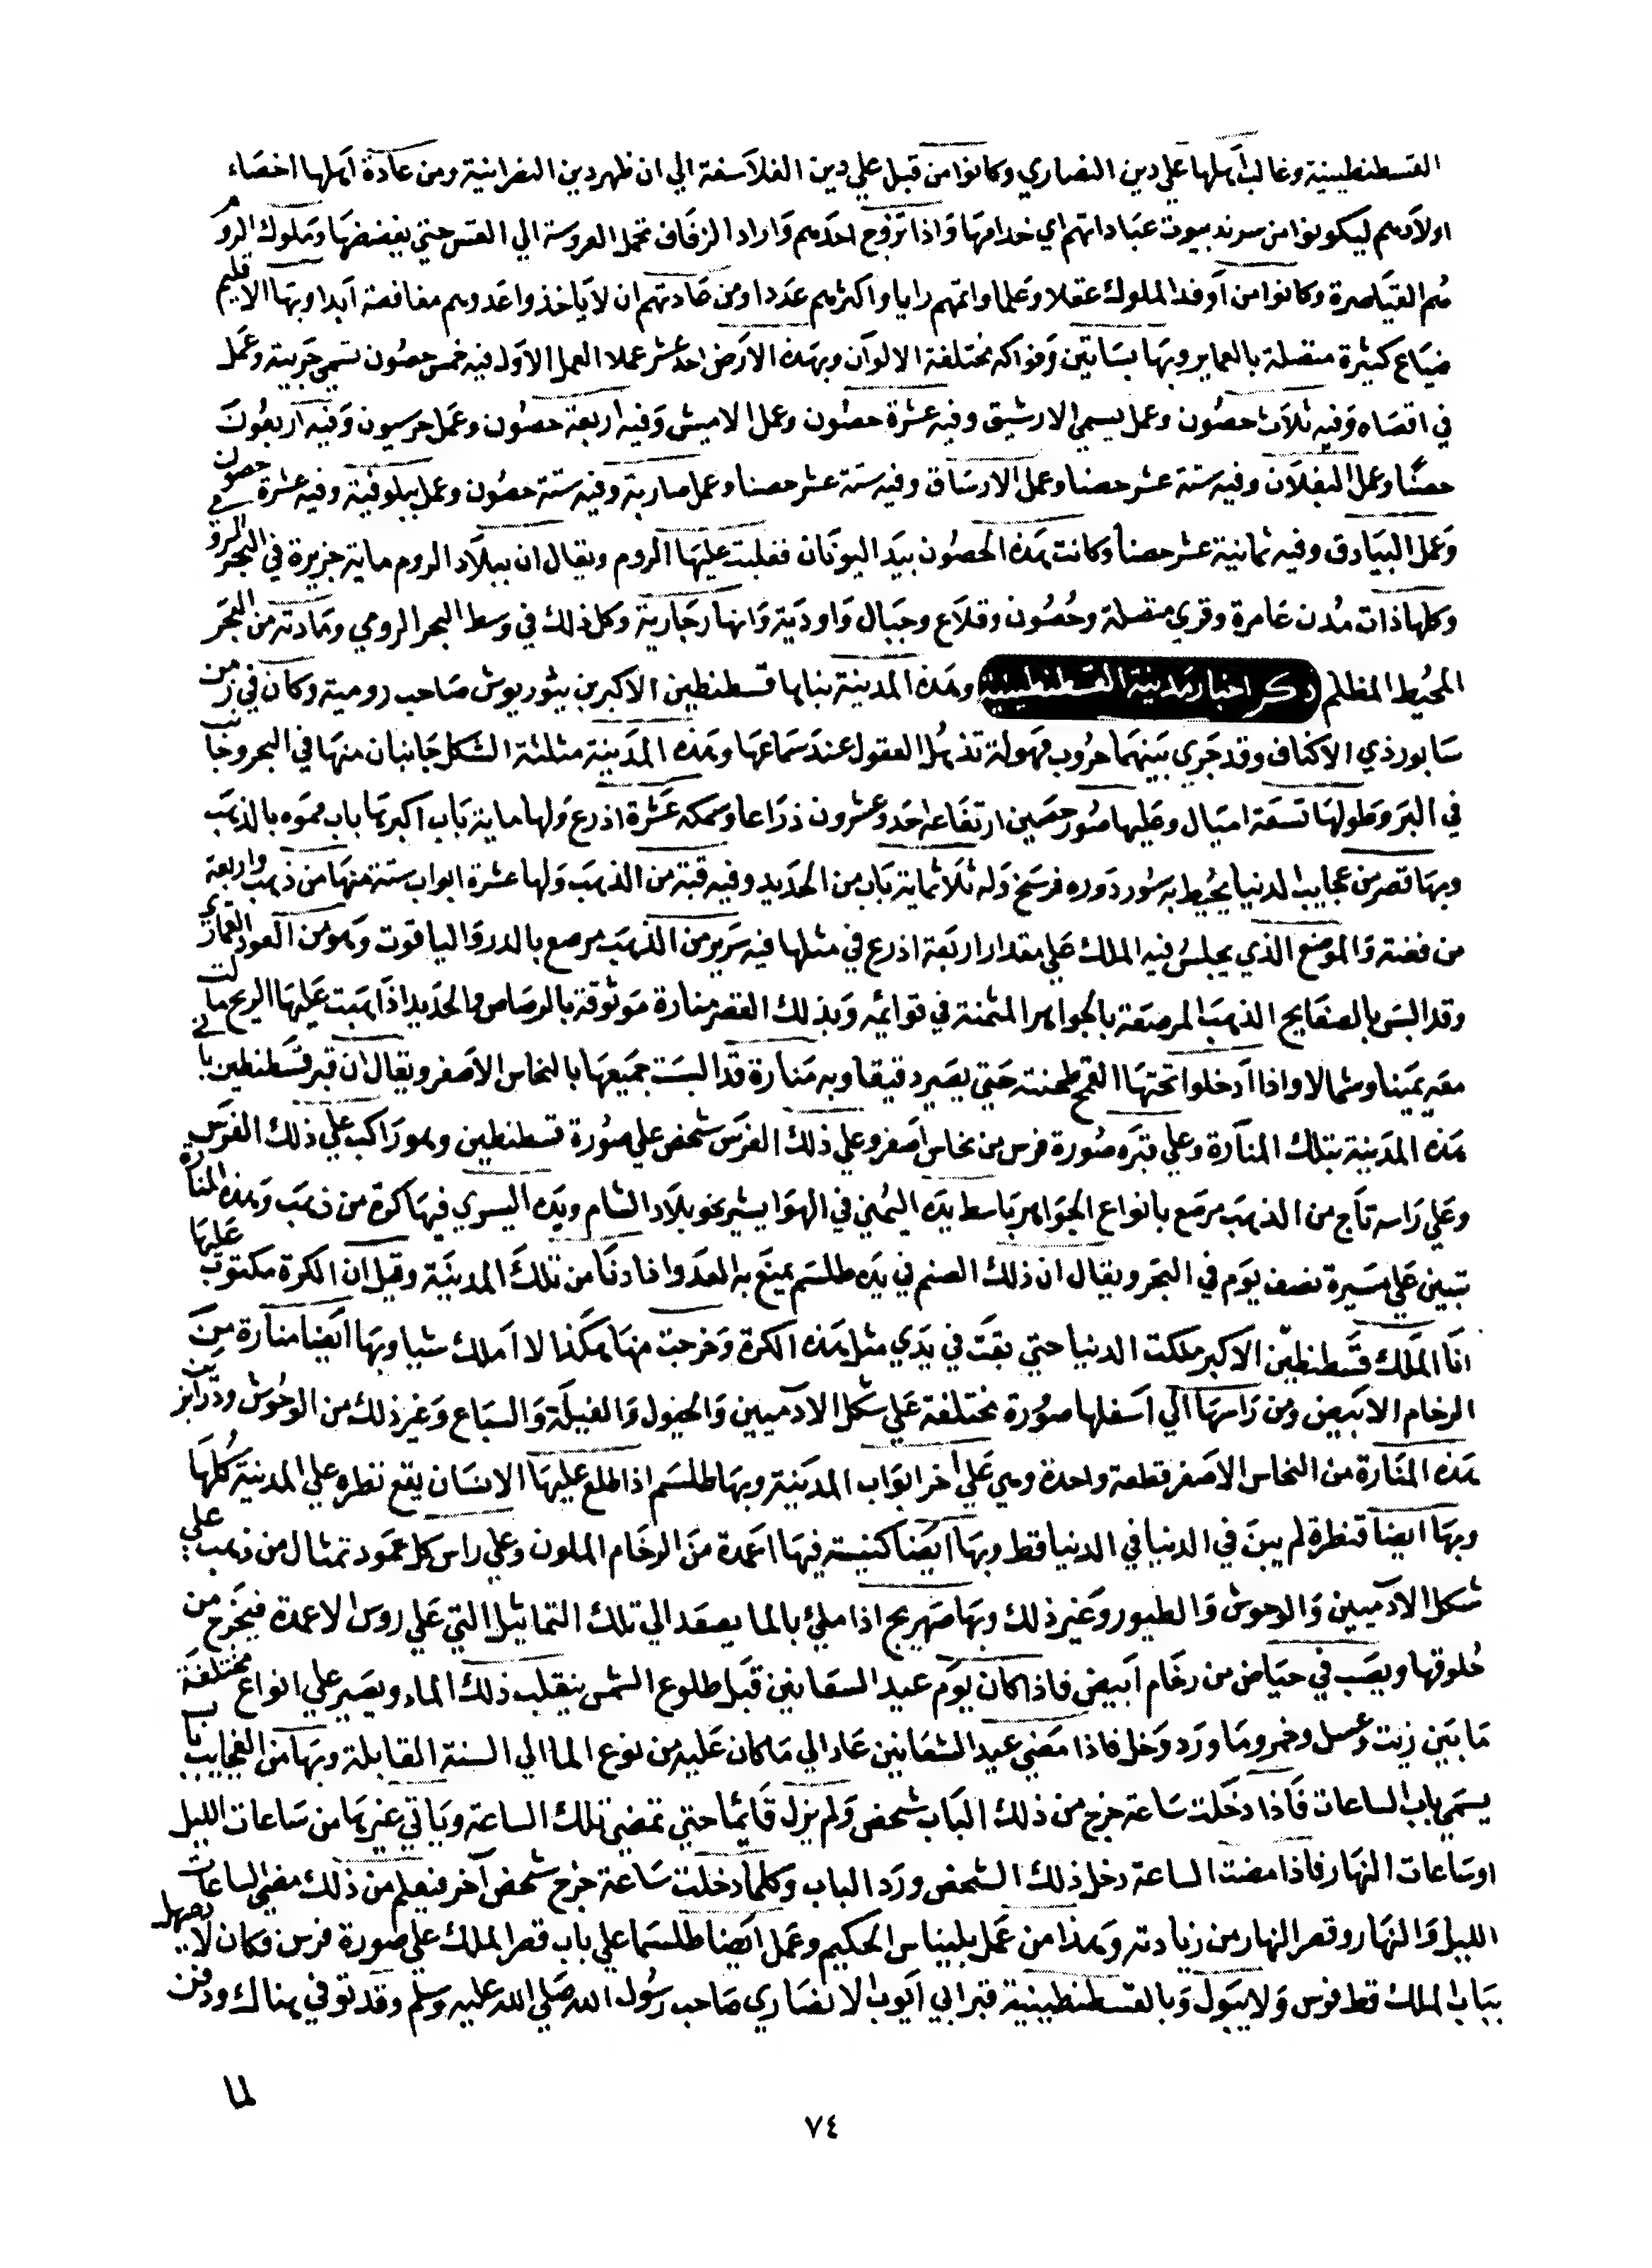 القسطنطينية وغالب اهلها علي دين النصاري وكانوا من قبل علي دين الفلاسفة الي ان ظهر دين النصرانية ومن عادة اهلها اخصاء
اولادهم ليكونوا من سدنة بيوت عباداتهم اي خدامها واذا تزوج احدهم واراد الزفاف تحمل العروسة الي القس حتي يفضضها وملوك الروم
هم القياصرة وكانوا من اوفد الملوك عقلا وعلما واتمهم رايا واكثرهم عددا ومن عادتهم ان لا ياخذوا عدوهم مغافصة ابدا وبهذا الاقليم
ضياع كثيرة متصلة بالعماير وبها بساتين وفواكه مختلفة الالوان وبهذه الارض احد عشر عملا العمل الاول فيه خمس حصون تسمي جزيية وعمل
في اقصاه وفيه ثلاث حصون وعمل يسمي الارشيق وفيه عشرة حصون وعمل الاميش وفيه اربعة حصون وعمل حرسيون وفيه اربعون
حصنا وعمل البقلان وفيه ستة عشر حصنا وعمل الارساق وفيه ستة عشر حصنا وعمل صارية وفيه ستة حصون وعمل ببلوقية وفيه عشرة حصون
وعمل البيادق وفيه ثمانية عشر حصنا وكانت هذه الحصون بيد اليونان فغلبت عليها الروم ويقال ان ببلاد الروم ماية جزيرة في البحر الرومي
وكلها ذات مدن عامرة وقري متصلة وحصون وقلاع وجبال واودية وانهار جارية وكل ذلك في وسط البحر الرومي ومادته من البحر
المحيط المظلم ذكر اخبار مدينة القسطنطينية وهذه المدينة بناها قسطنطين الاكبر بن بيثوريوش صاحب رومية وكان في زمن
سابور ذي الاكتاف وقد جري بينهما حروب مهولة تذهل العقول عند سماعها وهذه المدينة مثلثة الشكل جانبان منها في البحر وجانب
في البر وطولها تسعة اميال وعليها صور حصين ارتفاعه احد وعشرون ذراعا وسمكه عشرة اذرع ولها ماية باب اكبرها باب مموه بالذهب
وبها قصر من عجايب الدنيا يحيط به سور دوره فرسخ وله ثلاثماية باب من الحديد وفيه قبة من الذهب ولها عشرة ابواب ستة منها من ذهب واربعة
من فضة والموضع الذي يجلس فيه الملك علي مقدار اربعة اذرع في مثلها فيه سرير من الذهب مرصع بالدر والياقوت وهو من العود القماري
وقد البس بالصفايح الذهب المرصعة بالجواهر المثمنة في قوائمه وبذلك القصر منارة موثوقة بالرصاص والحديد اذا هبت عليها الريح مالت
معه يمينا وشمالا واذا ادخلوا تحتها القمح طحنته حتي يصير دقيقا وبه منارة قد البست جميعها بالنحاس الاصفر ويقال ان قبر قسطنطين باني
هذه المدينة بتلك المنارة وعلي قبره صورة فرس من نحاس اصفر وعلي ذلك الفرس شخص علي صورة قسطنطين وهو راكب علي ذلك الفرس
وعلي راسه تاج من الذهب مرصع بانواع الجواهر باسط يده اليمني في الهوا يشير نحو بلاد الشام ويده اليسري فيها كرة من ذهب وهذه المنارة
تبين علي مسيرة نصف يوم في البحر ويقال ان ذلك الصنم في يده طلسم يمنع به العدوا اذا دنا من تلك المدينة وقيل ان الكرة مكتوب عليها
انا الملك قسطنطين الاكبر ملكت الدنيا حتي بقت في يدي مثل هذه الكرة وخرجت منها هكذا لا املك شيا وبها ايضا منارة من
الرخام الابيض ومن راسها الي اسفلها صورة مختلفة علي شكل الادميين والخيول والفيلة والسباع وغير ذلك من الوحوش ودرابزين
هذه المنارة من النحاس الاصفر قطعة واحدة وهي علي اخر ابواب المدينة وبها طلسم اذا طلع عليها الانسان يقع نظره علي المدينة كلها
وبها ايضا قنطرة لم يبن في الدنيا في الدنيا قط وبها ايضا كنيسة فيها اعمدة من الرخام الملون وعلي راس كل عمود تمثال من ذهب علي
شكل الادميين والوحوش والطيور وغير ذلك وبها صهريج اذا ملي بالما يصعد الي تلك التماثيل التي علي روس الاعمدة فيخرج من
حلوقها ويصب في حياض من رخام ابيض فاذا كان يوم عيد السعانين قبل طلوع الشمس ينقلب ذلك الماء ويصير علي انواع مختلفة
ما بين زيت وعسل وخمر وما ورد وخل فاذا مضي عيد الشعانين عاد الي ما كان عليه من نوع الما الي السنة القابلة وبها من العجايب باب
يسمي باب الساعات فاذا دخلت ساعة خرج من ذلك الباب شخص ولم يزل قائما حتي تمضي تلك الساعة وياتي غيرها من ساعات الليل
او ساعات النهار فاذا مضت الساعة دخل ذلك الشخص ورد الباب وكلما دخلت ساعة خرج شخص آخر فيعلم من ذلك مضي الساعات
الليل والنهار وقصر النهار من زيادته وهذا من عمل بليناس الحكيم وعمل ايضا طلسما علي باب قصر الملك علي صورة فرس فكان لا يصهل
بباب الملك قط فرس ولا يبول وبالقسطنطينية قبر ابي ايوب الانصاري صاحب رسول الله صلي الله عليه وسلم وقد توفي هناك ودفن
لما
٧٤